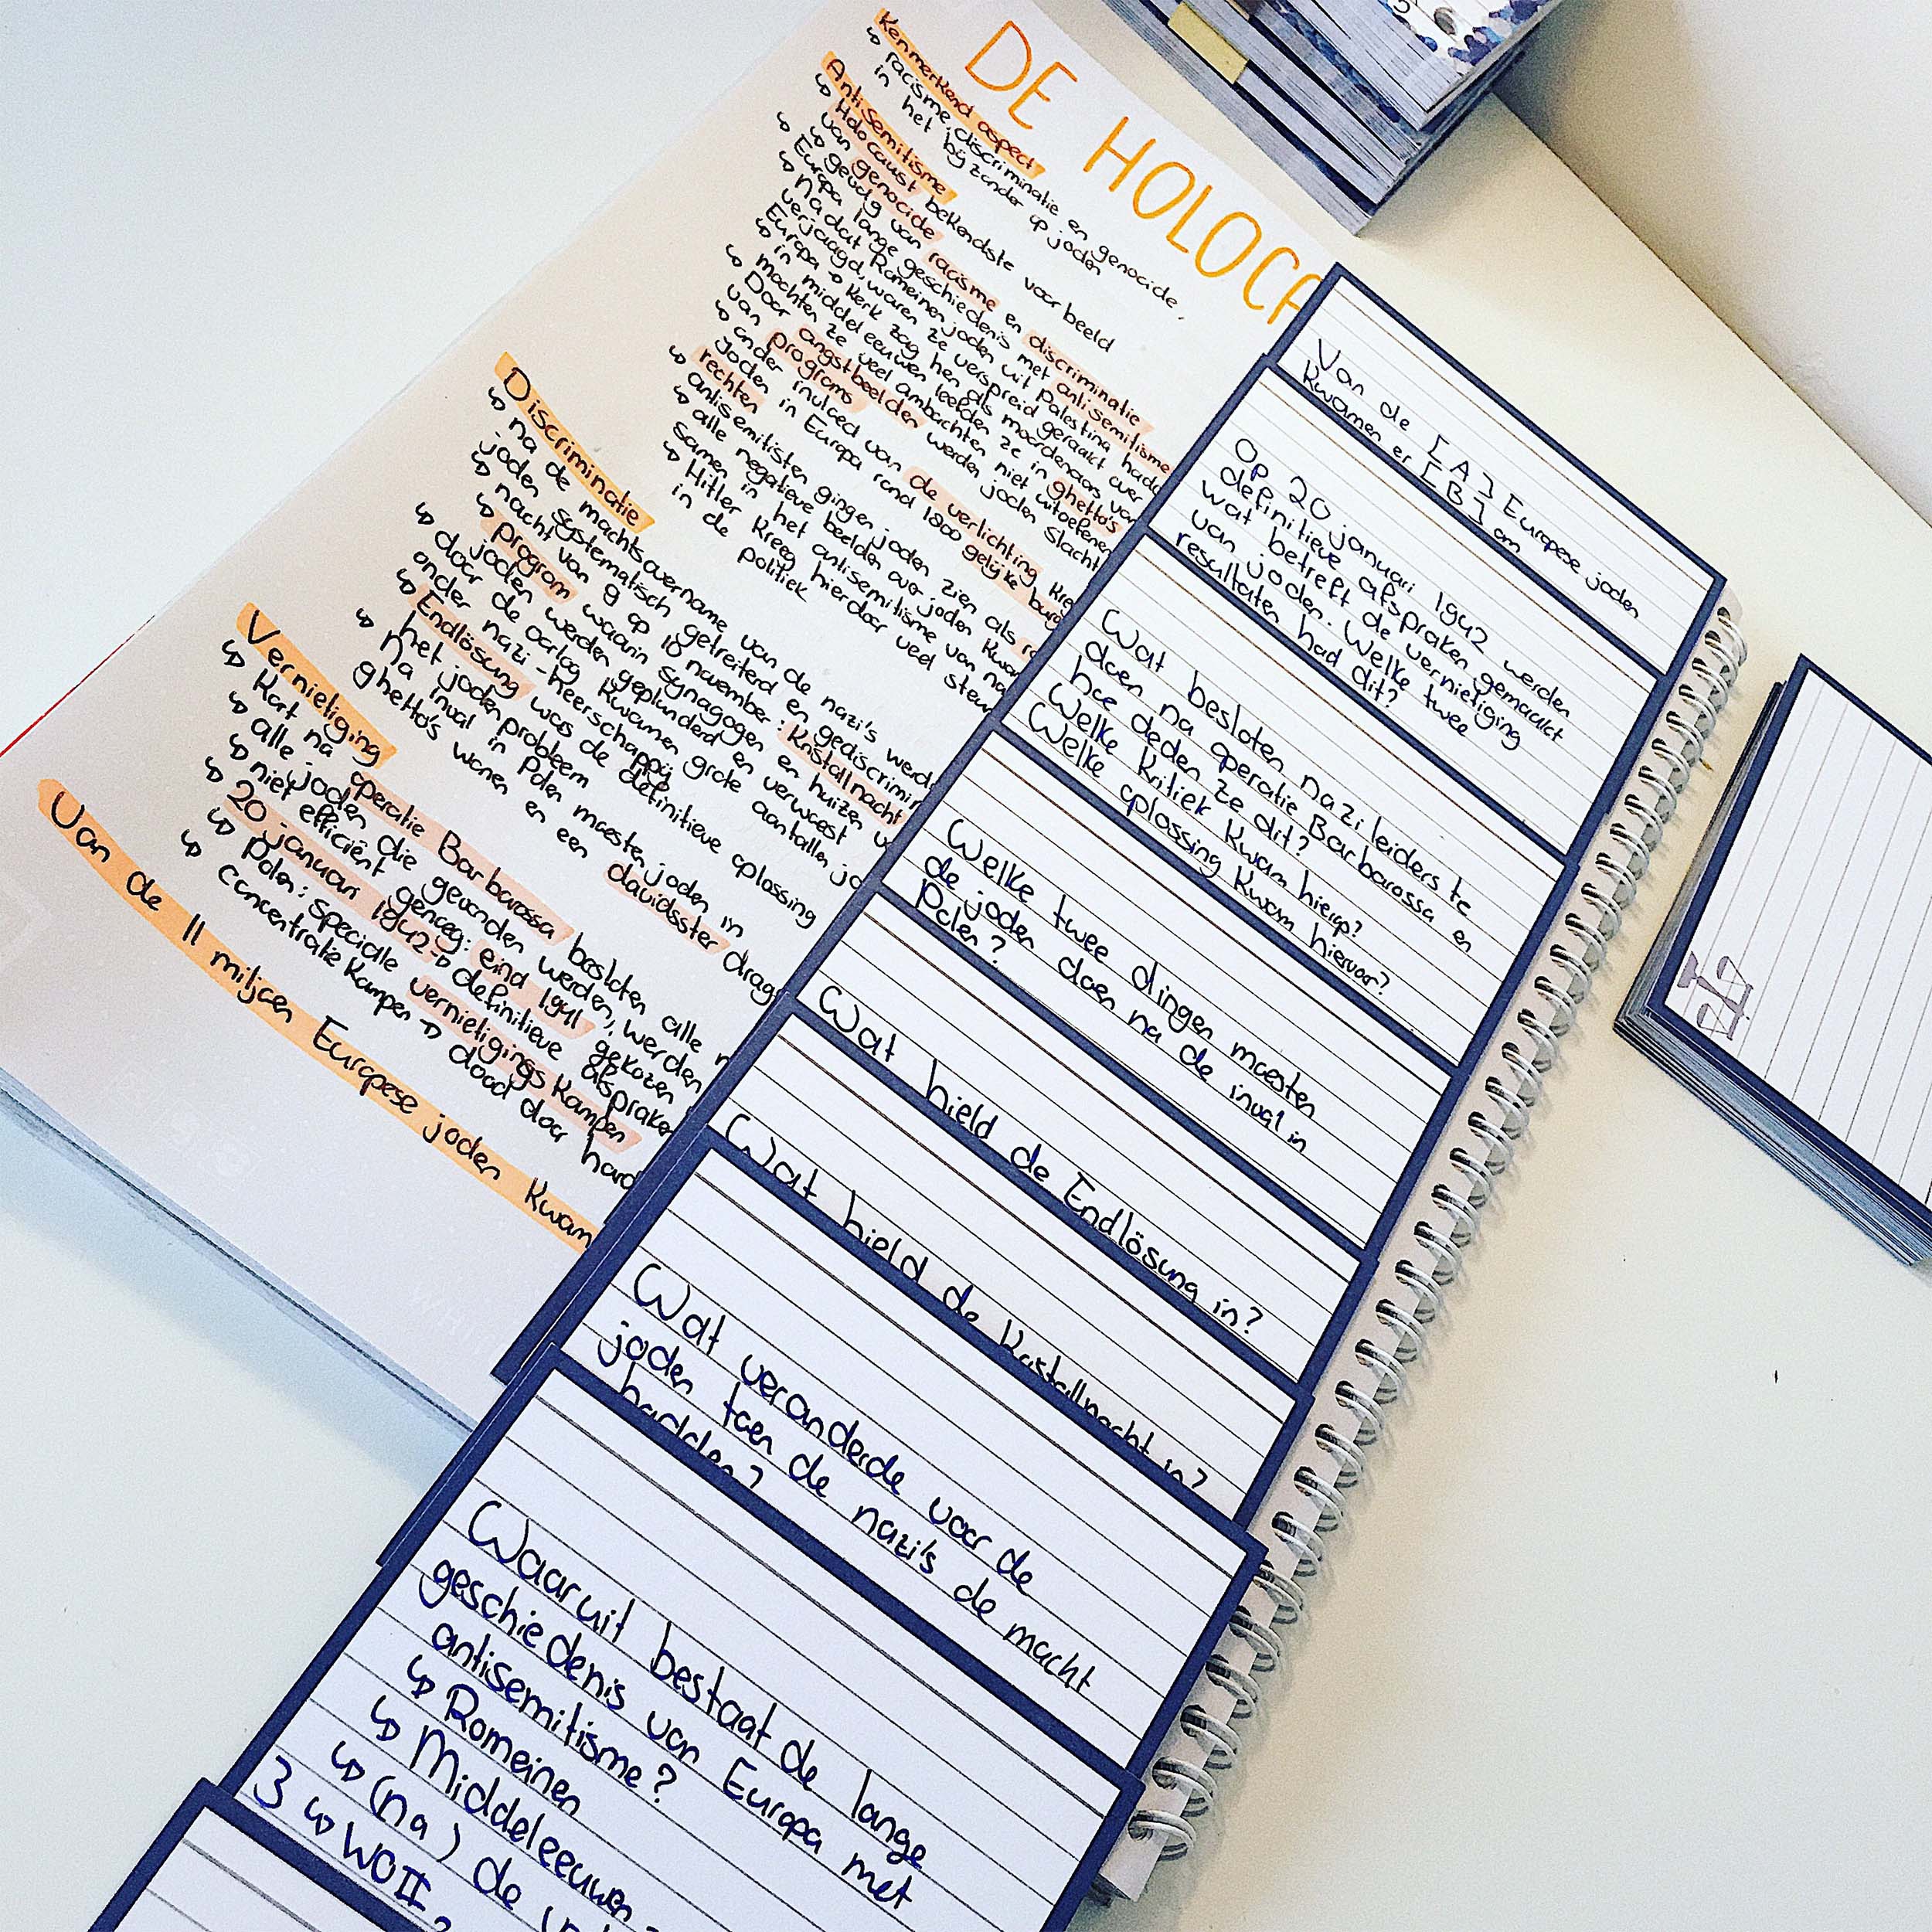 DE HOLOCA
Kenmerkend aspect
↳ racisme, discriminatie en genocide,
in het bijzonder op joden
Antisemitisme
↳ Holocaust bekendste voorbeeld
van genocide
↳ gevolg van racisme en discriminatie
↳ Europa lange geschiedenis met antisemitisme
↳ nadat Romeinen joden uit Palestina hadd
verjaagd, waren ze verspreid geraakt over
Europa → kerk zag hen als moordenaars van
↳ in middeleeuwen leefden ze in ghetto's
mochten ze veel ambachten niet uitoefenen
↳ Door angstbeelden werden joden slacht
van programs
↳ onder invloed van de verlichting kre
joden in Europa rond 1800 gelijke burg
rechten
↳ antisemitisten gingen joden zien als r
↳ alle negatieve beelden over joden kwa
samen in het antisemitisme van na
↳ Hitler kreeg hierdoor veel steun
in de politiek
Discriminatie
↳ na de machtsovername van de nazi's werd
joden systematisch getreiterd en gediscrimin
↳ nacht van 9 op 10 november: Kristallnacht
↳ program waarin synagogen en huizen v
joden werden geplunderd en verwoest
↳ door de oorlog kwamen grote aantallen jo
onder nazi-heerschappij
↳ Endlösung was de definitieve oplossing
het jodenprobleem
↳ na inval in Polen moesten joden in
ghetto's wonen en een davidsster drag
Vernietiging
↳ Kort na operatie Barbarossa besloten alle n
↳ alle joden die gevonden werden, werden
↳ niet efficiënt genoeg: eind 1941 gekozen
↳ 20 januari 1942 → definitieve afspraken
↳ Polen: speciale vernietigingskampen
↳ concentratiekampen → dood door hard
Van de 11 miljoen Europese joden kwam
Van de [A] Europese joden
kwamen er [B] om
Op 20 januari 1942 werden
definitieve afspraken gemaakt
wat betreft de vernietiging
van joden. Welke twee
resultaten had dit?
Wat besloten nazileiders te
doen na operatie Barbarossa en
hoe deden ze dit?
Welke kritiek kwam hierop?
Welke oplossing kwam hiervoor?
Welke twee dingen moesten
de joden doen na de inval in
Polen?
Wat hield de Endlösung in?
Wat hield de Kristallnacht in?
Wat veranderde voor de
joden toen de nazi's de macht
hadden?
Waaruit bestaat de lange
geschiedenis van Europa met
antisemitisme?
↳ Romeinen
↳ Middeleeuwen
↳ (na) de
3 ↳ WOII